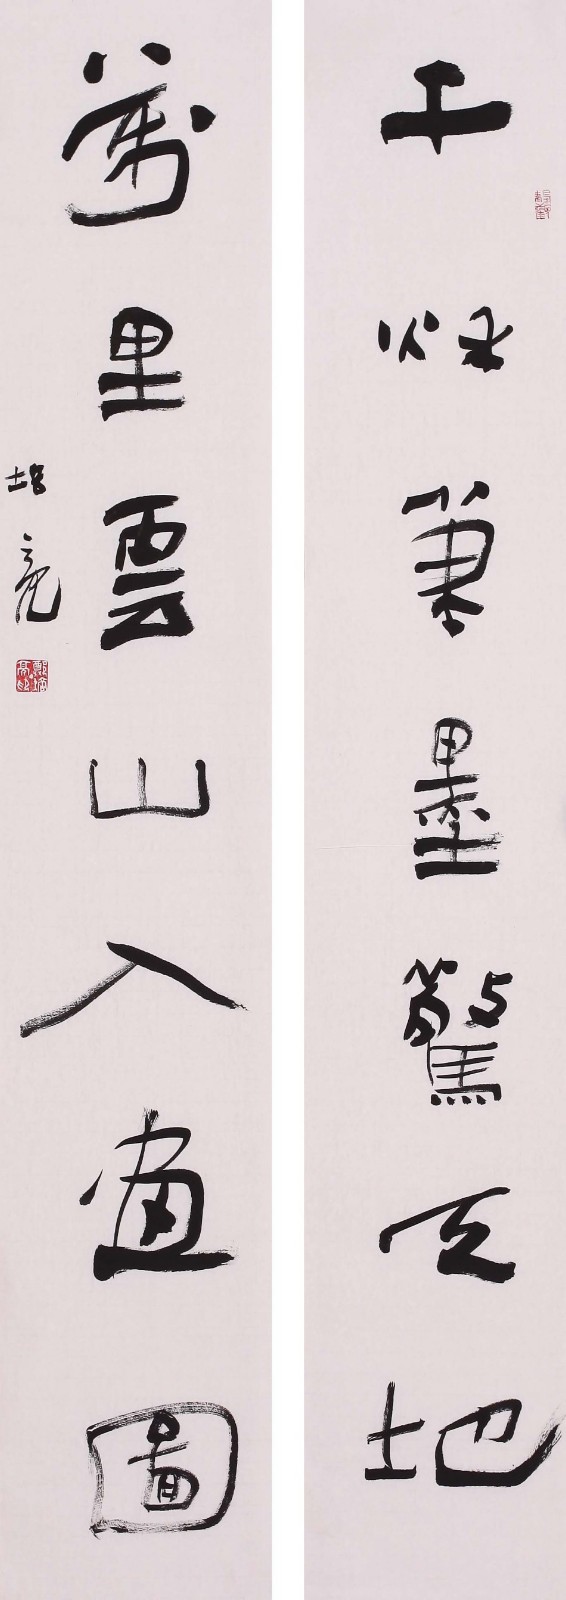 千秋筆墨驚天地
萬里雲山入畫圖
培亮